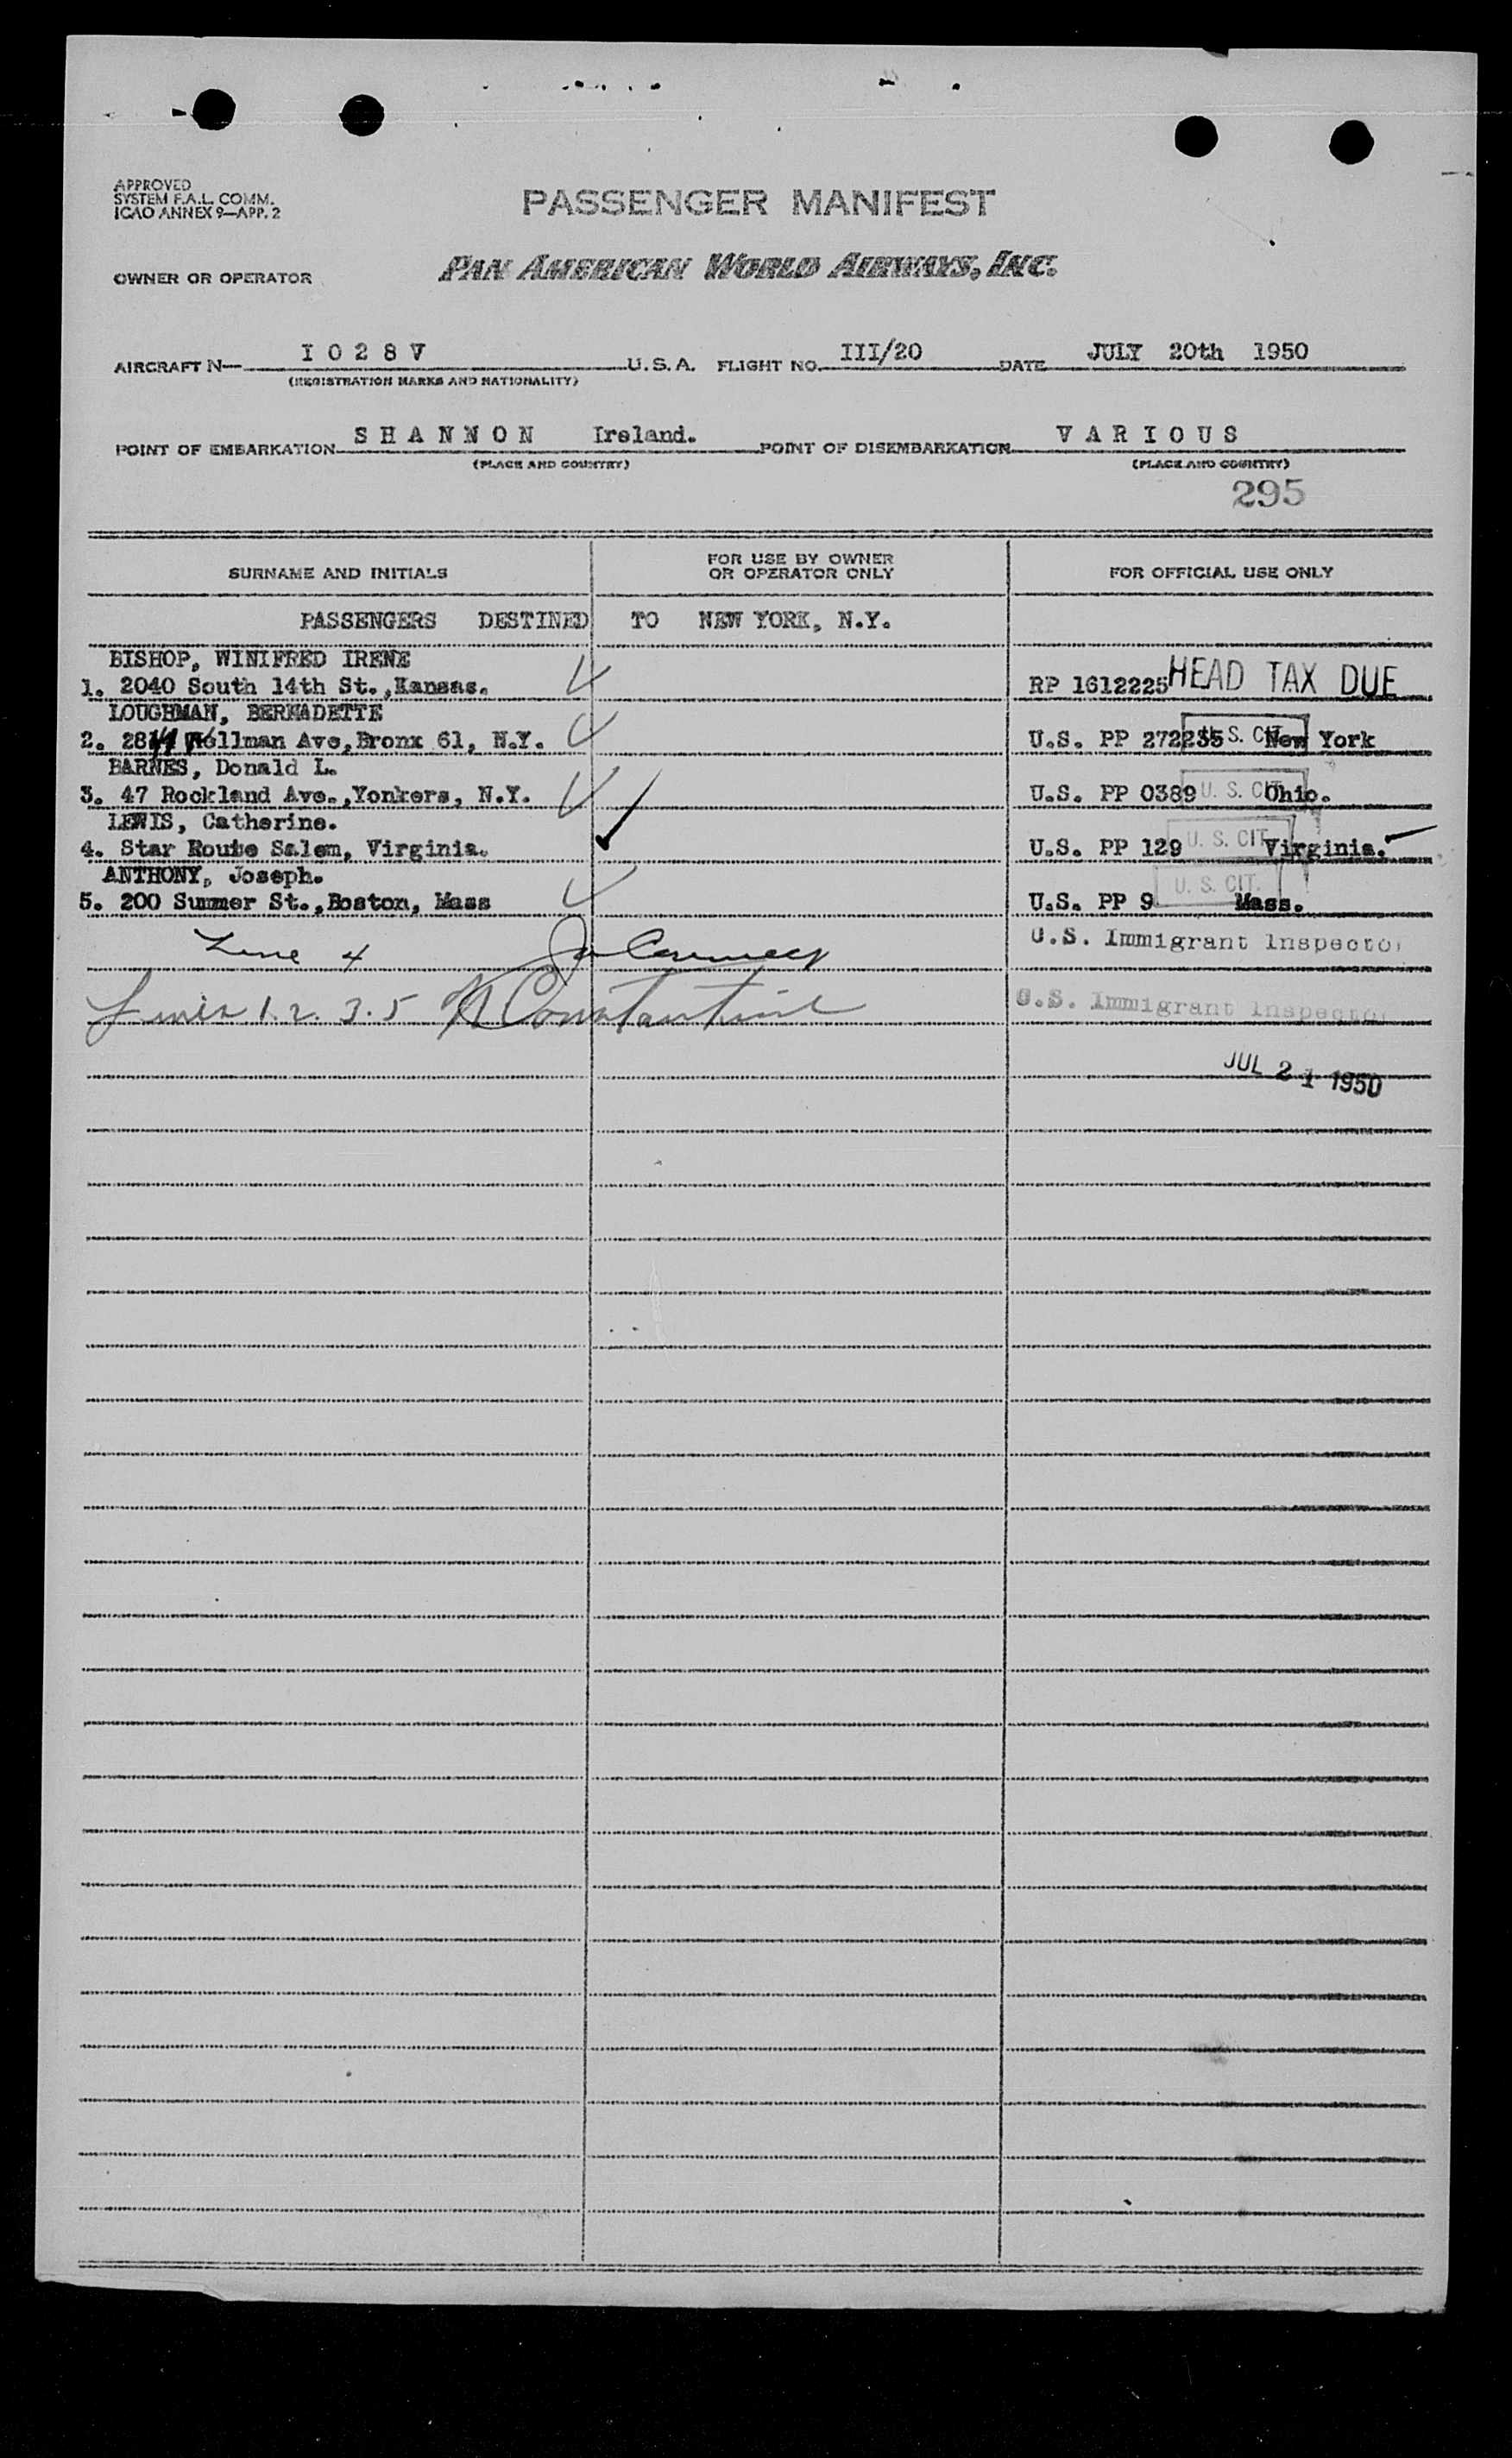 APPROVED
SYSTEM F.A.L. COMM.
ICAO ANNEX 9—APP. 2
PASSENGER MANIFEST
OWNER OR OPERATOR PAN AMERICAN WORLD AIRWAYS, INC.
AIRCRAFT N— I 0 2 8 V U.S.A. FLIGHT NO. III/20 DATE JULY 20th 1950
(REGISTRATION MARKS AND NATIONALITY)
POINT OF EMBARKATION S H A N N O N Ireland. POINT OF DISEMBARKATION V A R I O U S
(PLACE AND COUNTRY) (PLACE AND COUNTRY)
295
SURNAME AND INITIALS FOR USE BY OWNER OR OPERATOR ONLY FOR OFFICIAL USE ONLY
PASSENGERS DESTINED TO NEW YORK, N.Y.
BISHOP, WINIFRED IRENE
1. 2040 South 14th St.,Kansas. RP 1612225 HEAD TAX DUE
LOUGHMAN, BERNADETTE
2. Ave,Bronx 61, N.Y. U.S. PP 272235 U. S. CIT. New York
BARNES, Donald L.
3. 47 Rockland Ave.,Yonkers, N.Y. U.S. PP 0389 U. S. CIT. Ohio.
LEWIS, Catherine.
4. Star Route Salem, Virginia. U.S. PP 129 U. S. CIT. Virginia.
ANTHONY, Joseph.
5. 200 Summer St.,Boston, Mass U.S. PP 9 U. S. CIT. Mass.
Line 4 U.S. Immigrant Inspector
Lines 1. 2. 3. 5 Constantine U.S. Immigrant Inspector
JUL 21 1950